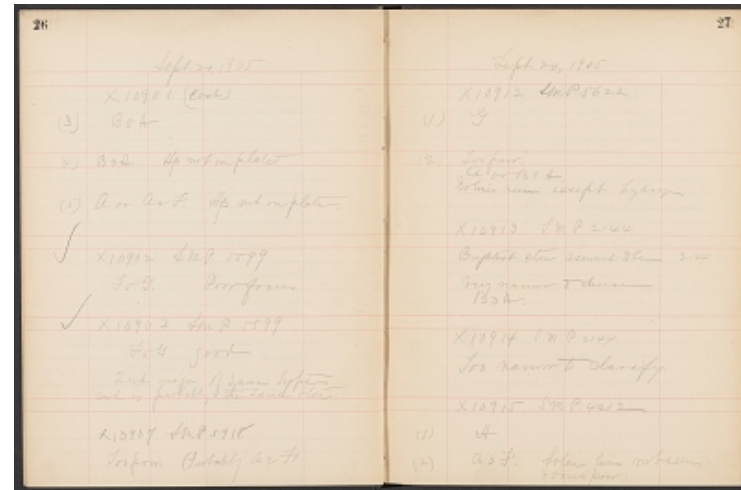 26
Sept. 20, 1905
X10901 (cont)
(3) B5A
4) B5A Hp not on plate
(5) A or A2F. Hp not on plate
X10902 S.M.P. 5599
F5G. Poor focus
X10902 S.M.P. 5599
F5G good
2nd
X10907 S.M.P. 5918
Too poor. (Probably A2F)
27
Sept. 20, 1905
X10912 S.M.P. 5622
(1) G
(2) Too poor.
A or B9A
lines seen except hydrogen
X10913 S.M.P. 2144
Brightest star assumed 2144
Very narrow & dense
B5A.
X10914 S.M.P. 2144
Too narrow to classify
X10915 S.M.P. 4212
(1) A
(2) A5F. Solar lines not seen